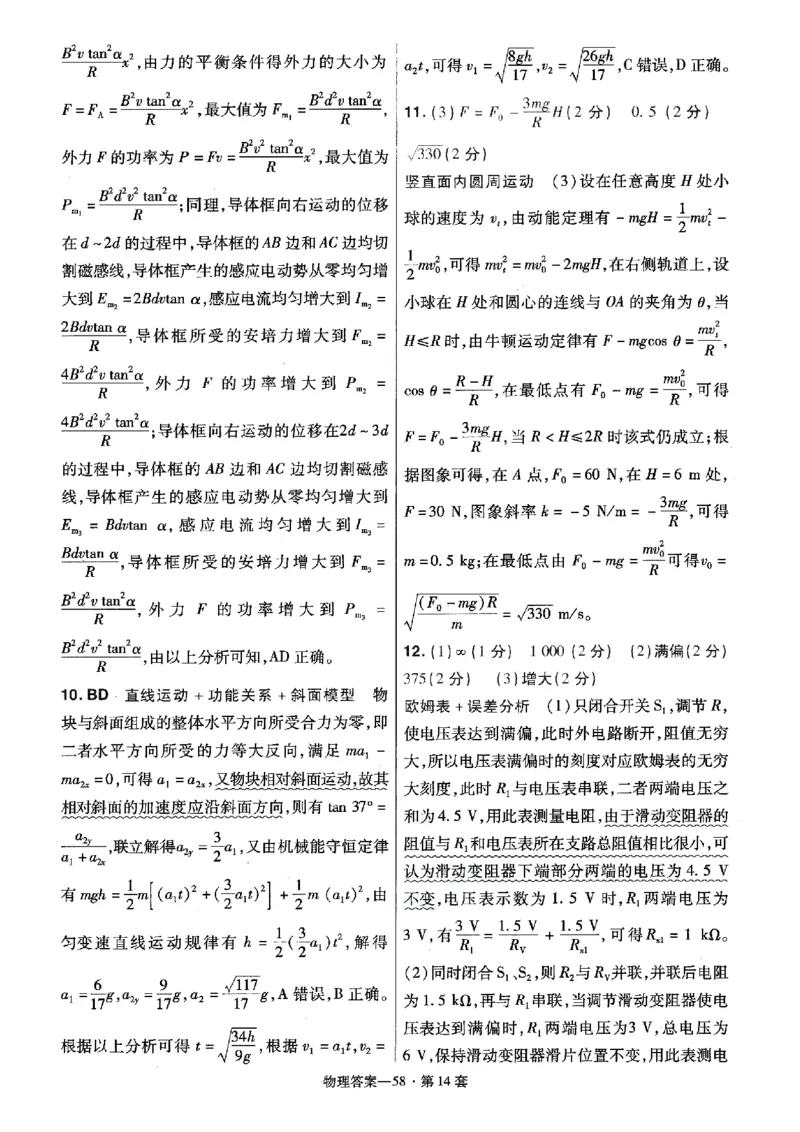 $\frac{B^2v\tan^2\alpha}{R}x^2$,由力的平衡条件得外力的大小为
$F=F_A=\frac{B^2v\tan^2\alpha}{R}x^2$,最大值为$F_{m_1}=\frac{B^2d^2v\tan^2\alpha}{R}$,
外力F的功率为$P=Fv=\frac{B^2v^2\tan^2\alpha}{R}x^2$,最大值为
$P_{m_1}=\frac{B^2d^2v^2\tan^2\alpha}{R}$;同理,导体框向右运动的位移
在d~2d的过程中,导体框的AB边和AC边均切
割磁感线,导体框产生的感应电动势从零均匀增
大到$E_{m_2}=2Bdv\tan\alpha$,感应电流均匀增大到$I_{m_2}=$
$\frac{2Bdv\tan\alpha}{R}$,导体框所受的安培力增大到$F_{m_2}=$
$\frac{4B^2d^2v\tan^2\alpha}{R}$,外力 F 的功率增大到 $P_{m_2}=$
$\frac{4B^2d^2v^2\tan^2\alpha}{R}$;导体框向右运动的位移在2d~3d
的过程中,导体框的AB边和AC边均切割磁感
线,导体框产生的感应电动势从零均匀增大到
$E_{m_3}=Bdv\tan\alpha$,感应电流均匀增大到$I_{m_3}=$
$\frac{Bdv\tan\alpha}{R}$,导体框所受的安培力增大到$F_{m_3}=$
$\frac{B^2d^2v\tan^2\alpha}{R}$,外力 F 的功率增大到 $P_{m_3}=$
$\frac{B^2d^2v^2\tan^2\alpha}{R}$,由以上分析可知,AD正确。
10. BD 直线运动+功能关系+斜面模型 物
块与斜面组成的整体水平方向所受合力为零,即
二者水平方向所受的力等大反向,满足$ma_1-$
$ma_{2x}=0$,可得$a_1=a_{2x}$,又物块相对斜面运动,故其
相对斜面的加速度应沿斜面方向,则有$\tan37°=$
$\frac{a_{2y}}{a_1+a_{2x}}$,联立解得$a_{2y}=\frac{3}{2}a_1$,又由机械能守恒定律
有$mgh=\frac{1}{2}m\left[(a_1t)^2+(\frac{3}{2}a_1t)^2\right]+\frac{1}{2}m(a_1t)^2$,由
匀变速直线运动规律有$h=\frac{1}{2}(\frac{3}{2}a_1)t^2$,解得
$a_1=\frac{6}{17}g,a_{2y}=\frac{9}{17}g,a_2=\frac{\sqrt{117}}{17}g$,A错误,B正确。
根据以上分析可得$t=\sqrt{\frac{34h}{9g}}$,根据$v_1=a_1t,v_2=$
$a_2t$,可得$v_1=\sqrt{\frac{8gh}{17}},v_2=\sqrt{\frac{26gh}{17}}$,C错误,D正确。
11. (3)$F=F_0-\frac{3mg}{R}H$(2分) 0.5 (2分)
$\sqrt{330}$(2分)
竖直面内圆周运动 (3)设在任意高度H处小
球的速度为$v_t$,由动能定理有$-mgH=\frac{1}{2}mv_t^2-$
$\frac{1}{2}mv_0^2$,可得$mv_t^2=mv_0^2-2mgH$,在右侧轨道上,设
小球在H处和圆心的连线与OA的夹角为θ,当
H≤R时,由牛顿运动定律有$F-mg\cos\theta=\frac{mv_t^2}{R}$,
$\cos\theta=\frac{R-H}{R}$,在最低点有$F_0-mg=\frac{mv_0^2}{R}$,可得
$F=F_0-\frac{3mg}{R}H$,当R<H≤2R时该式仍成立;根
据图象可得,在A点,$F_0=60$ N,在H=6 m处,
F=30 N,图象斜率$k=-5$ N/m$=-\frac{3mg}{R}$,可得
m=0.5 kg;在最低点由$F_0-mg=\frac{mv_0^2}{R}$可得$v_0=$
$\sqrt{\frac{(F_0-mg)R}{m}}=\sqrt{330}$ m/s。
12. (1)∞(1分) 1 000 (2分) (2)满偏(2分)
375(2分) (3)增大(2分)
欧姆表+误差分析 (1)只闭合开关$S_1$,调节R,
使电压表达到满偏,此时外电路断开,阻值无穷
大,所以电压表满偏时的刻度对应欧姆表的无穷
大刻度,此时$R_1$与电压表串联,二者两端电压之
和为4.5 V,用此表测量电阻,由于滑动变阻器的
阻值与$R_1$和电压表所在支路总阻值相比很小,可
认为滑动变阻器下端部分两端的电压为4.5 V
不变,电压表示数为1.5 V时,$R_1$两端电压为
3 V,有$\frac{3\ V}{R_1}=\frac{1.5\ V}{R_V}+\frac{1.5\ V}{R_{x1}}$,可得$R_{x1}=1$ kΩ。
(2)同时闭合$S_1$、$S_2$,则$R_2$与$R_V$并联,并联后电阻
为1.5 kΩ,再与$R_1$串联,当调节滑动变阻器使电
压表达到满偏时,$R_1$两端电压为3 V,总电压为
6 V,保持滑动变阻器滑片位置不变,用此表测电
物理答案—58·第14套